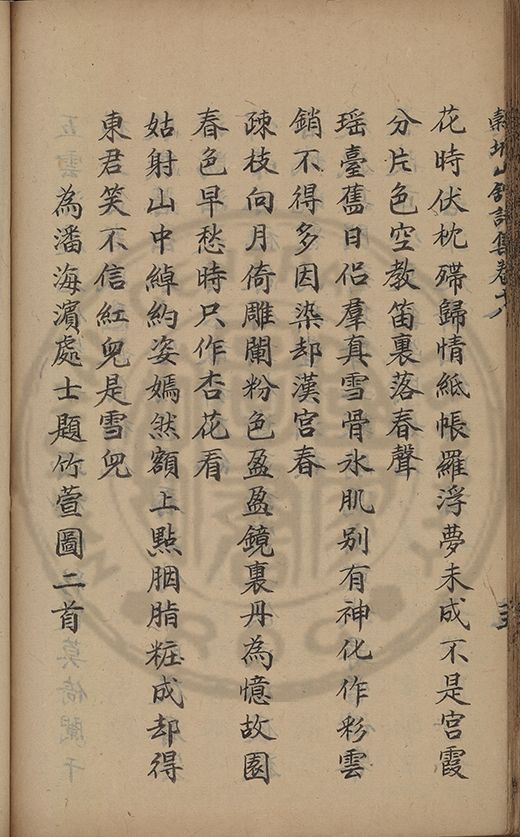 山
詩集卷十八
花時伏枕殢歸情紙帳羅浮夢未成不是宮霞
分片色空教笛裏落春聲
瑶臺舊日侣羣真雪骨氷肌别有神化作彩雲
銷不得多因染却漢宮春
疎枝向月倚雕闌粉色盈盈鏡裏丹為憶故園
春色早愁時只作杏花看
姑射山中綽約姿嫣然額上點胭脂粧成却得
東君笑不信紅兒是雪兒
為潘海濵處士題竹萱圖二首